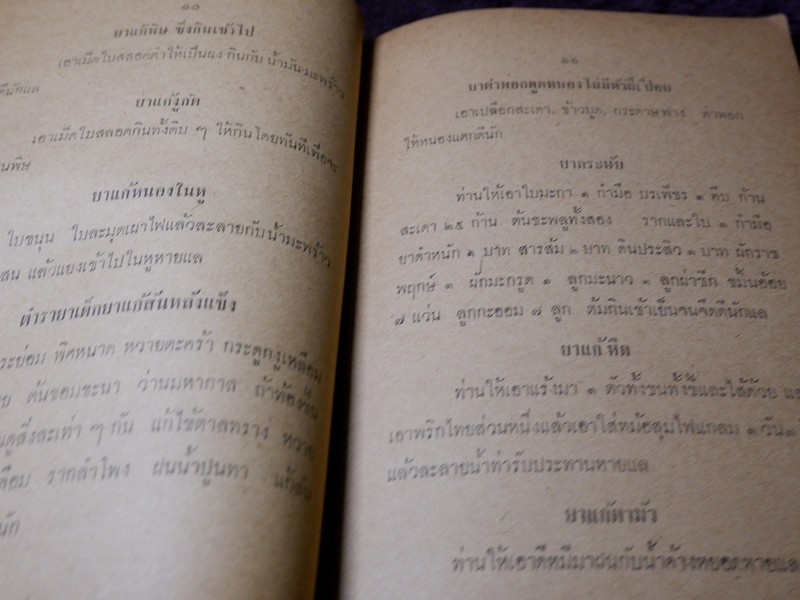 ๑๐
ยาแก้พิษ ซึ่งกินเข้าไป
เอาเม็ดใบสลอดตำให้เป็นผง กินกับ น้ำมันมะพร้าว
ดีนักแล
ยาแก้งูกัด
เอาเม็ดใบสลอดกินทั้งดิบ ๆ ให้กินโดยทันทีเพื่อจะ
พิษ
ยาแก้หนองในหู
ใบขนุน ใบละมุดเผาไฟแล้วละลายกับน้ำมะพร้าว
แล้วแยงเข้าไปในหูหายแล
ตำรายาเด็กยาแก้สันหลังแข็ง
ระย่อม พิศหนาด หวายตะคร้า กระดูกงูเหลือม
ต้นขอมชะนา ว่านมหากาล ถ้าท้องขึ้น
สิ่งละเท่า ๆ กัน แก้ไข้ตาลทราง หวาย
รากลำโพง ฝนน้ำปูนทา
๑๑
ยาตำพอกดูดหนองไม่มีหัวฝีเปื่อย
เอาเปลือกสะเดา, ข้าวบูด, กระดาษฟาง ตำพอก
ให้หนองแตกดีนัก
ยากระษัย
ท่านให้เอาใบมะกา ๑ กำมือ บรเพ็ชร ๑ คืบ ก้าน
สะเดา ๒๕ ก้าน ต้นชะพลูทั้งสอง รากและใบ ๑ กำมือ
ยาดำหนัก ๑ บาท สารส้ม ๒ บาท ดินประสิว ๑ บาท ฝักราช
พฤกษ์ ๑ ฝักมะกรูด ๑ ลูกมะนาว ๑ ลูกผ่าซีก ขมิ้นอ้อย
๗ แว่น ลูกกะออม ๗ ลูก ต้มกินเช้าเย็นจนจืดดีนักแล
ยาแก้หืด
ท่านให้เอาแร้งมา ๑ ตัวทั้งขนทั้งขี้และไส้ด้วย
เอาพริกไทยส่วนหนึ่งแล้วเอาใส่หม้อสุมไฟแกลบ ๑ วัน
แล้วละลายน้ำท่ารับประทานหายแล
ยาแก้ตามัว
ท่านให้เอาดีหมีมาฝนกับน้ำค้างหยอดหายแล